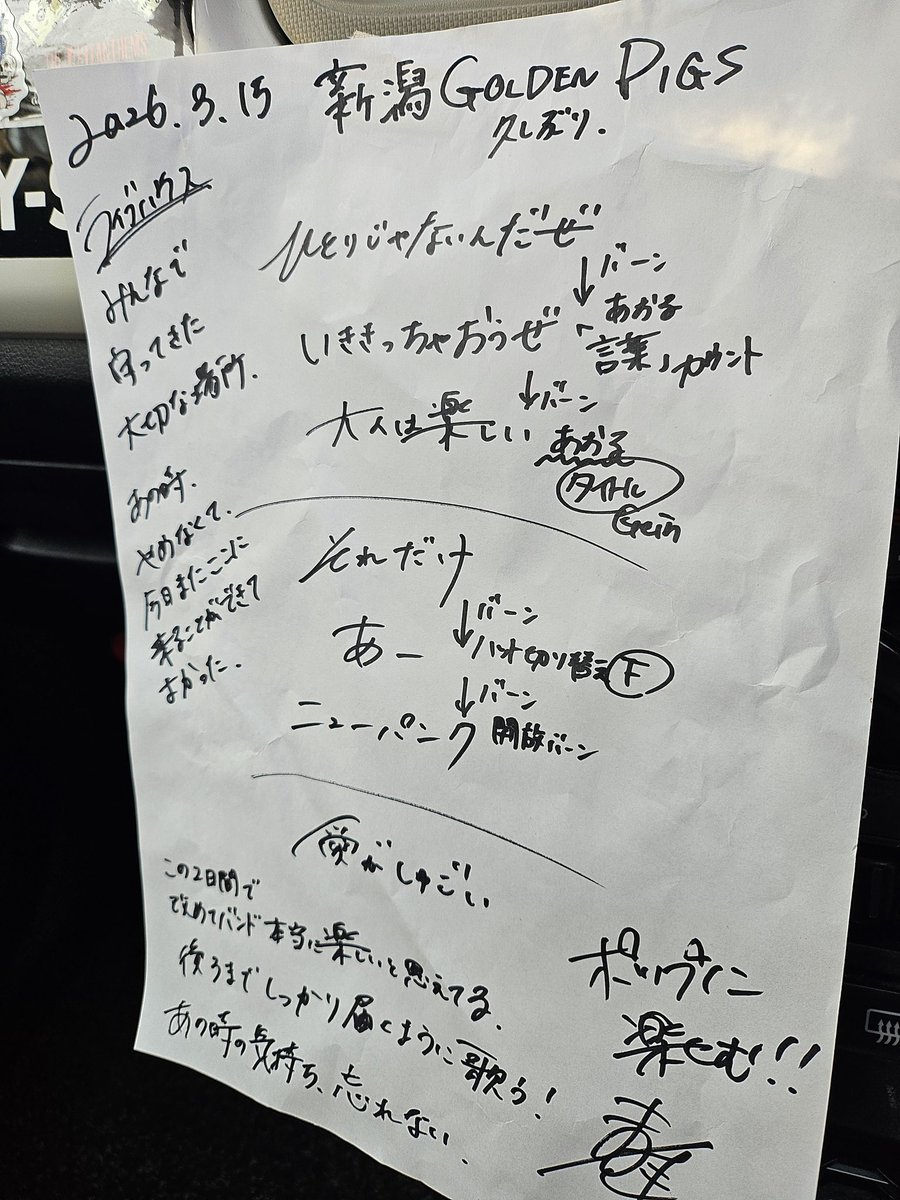 2026.3.15 新潟 GOLDEN PIGS
久しぶり.
ライブハウス
みんなで
守ってきた
大切な場所.
あの時.
やめなくて.
今日またここに
来ることができて
よかった.
ひとりじゃないんだぜ
↓バーン
いききっちゃおうぜ
あかる
「言葉」カウント
↓バーン
大人は楽しい
あかる
タイトル
それだけ
↓バーン
あー
ハット切り替え 下
↓バーン
ニューパンク 開放バーン
愛がしゃごい
この2日間で
改めてバンド本当に楽しいと思えてる.
後ろまでしっかり届くように歌う!
あの時の気持ち、忘れない.
ポップイン
楽しむ!!